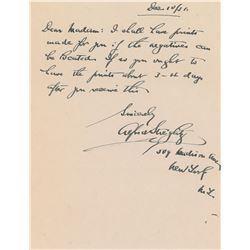 Dear Madam: I shall have prints
made for you if the negatives can
be located. If so you ought to
have the prints about 8-10 days
after you receive this
Sincerely
Alfred Stieglitz
509 Madison Ave
New York
N.Y.